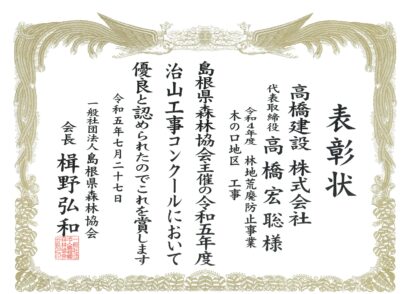 表彰状
高橋建設 株式会社
代表取締役 高橋宏聡様
令和4年度 林地荒廃防止事業
木の口地区 工事
島根県森林協会主催の令和五年度
治山工事コンクールにおいて
優良と認められたのでこれを賞します
令和五年七月二十七日
一般社団法人 島根県森林協会
会長 楫野弘和